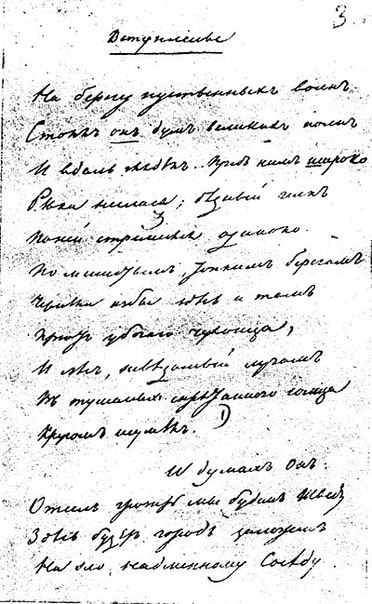 3
Вступленье
На берегу пустынныхъ волнъ
Стоялъ онъ думъ великихъ полнъ
И вдаль глядѣлъ. Предъ нимъ широко
Рѣка неслася; бѣдный челнъ
По ней стремился одиноко.
По мшистымъ, топкимъ берегамъ
Чернѣли избы здѣсь и тамъ
Пріютъ убогаго чухонца,
И лѣсъ, невѣдомый лучамъ
Въ туманѣ спрятаннаго солнца
Кругомъ шумѣлъ. 1)
И думалъ Онъ:
Отсель грозить мы будемъ Шведу
Здѣсь будетъ городъ заложенъ
На зло надменному Сосѣду.